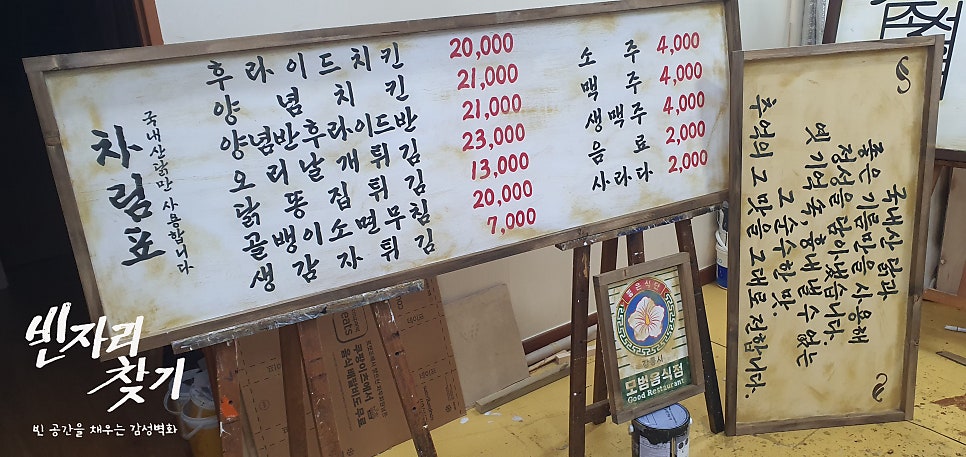 차림표
국내산 닭만 사용합니다
후라이드치킨 20,000
양념치킨 21,000
양념반후라이드반 21,000
오리날개튀김 23,000
닭똥집튀김 13,000
골뱅이소면무침 20,000
생감자튀김 7,000
소주 4,000
맥주 4,000
생맥주 4,000
음료 2,000
사라다 2,000
국내산 닭과
좋은 기름만을 사용해
정성을 담아냈습니다.
옛 기억 속, 흉내낼 수 없는
그 순수한 맛.
추억의 그 맛을 그대로 전합니다.
좋은식단
모범음식점
Good Restaurant
eats
쿠팡이츠에서
음식 배달비도 무료
빈자리
찾기
빈 공간을 채우는 감성벽화